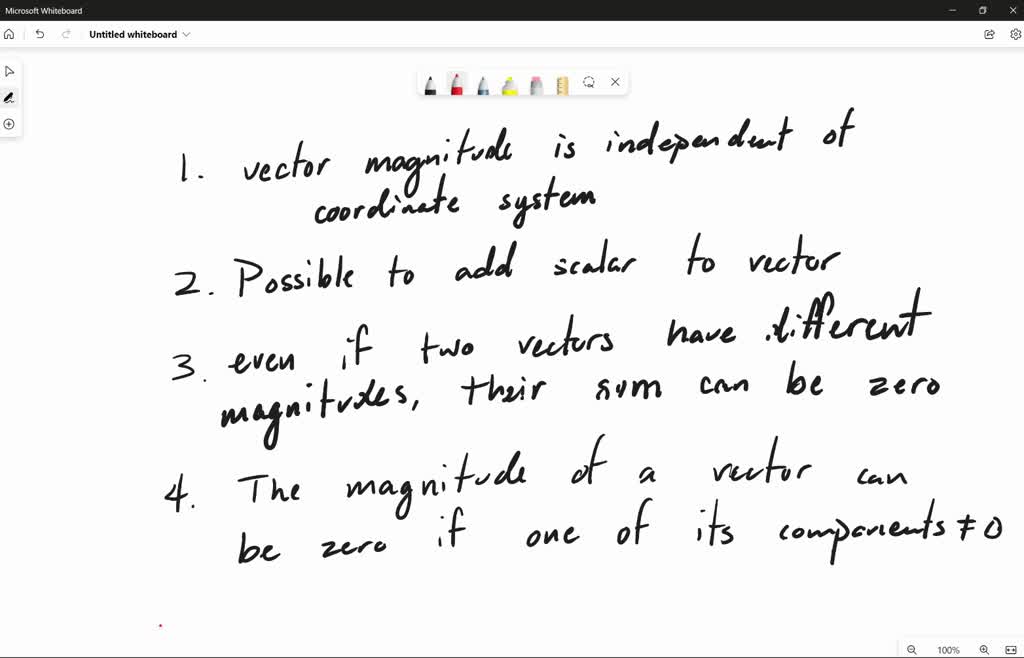 Microsoft Whiteboard
Untitled whiteboard
1. vector magnitude is independent of
coordinate system
2. Possible to add scalar to vector
3. even if two vectors have different
magnitudes, their sum can be zero
4. The magnitude of a vector can
be zero if one of its components ≠ 0
100%